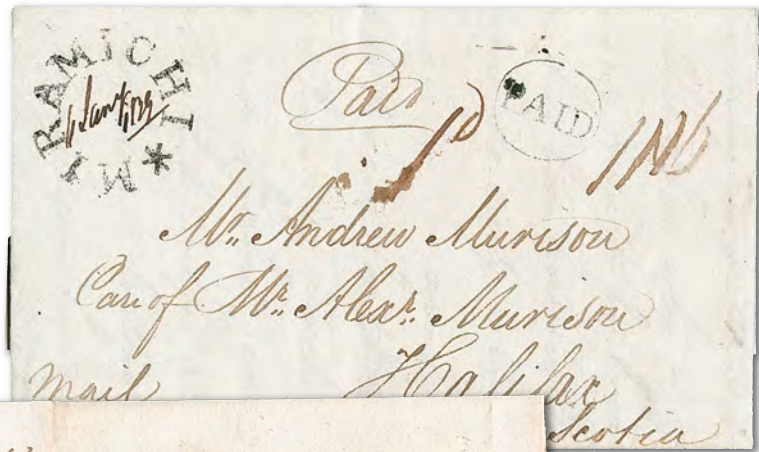 MYRAMICHI *
Paid
PAID
Mr. Andrew Murison
Care of Mr. Alexr. Murison
Halifax
Mail
Scotia